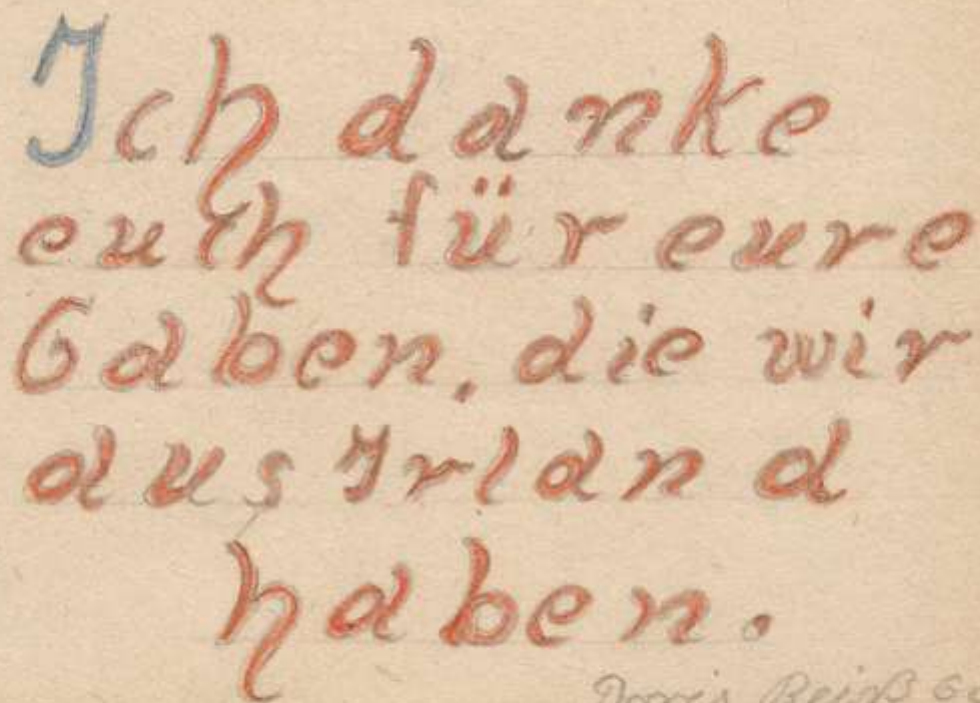 Ich danke
euch für eure
Gaben, die wir
aus Irland
haben.
Doris Reiß